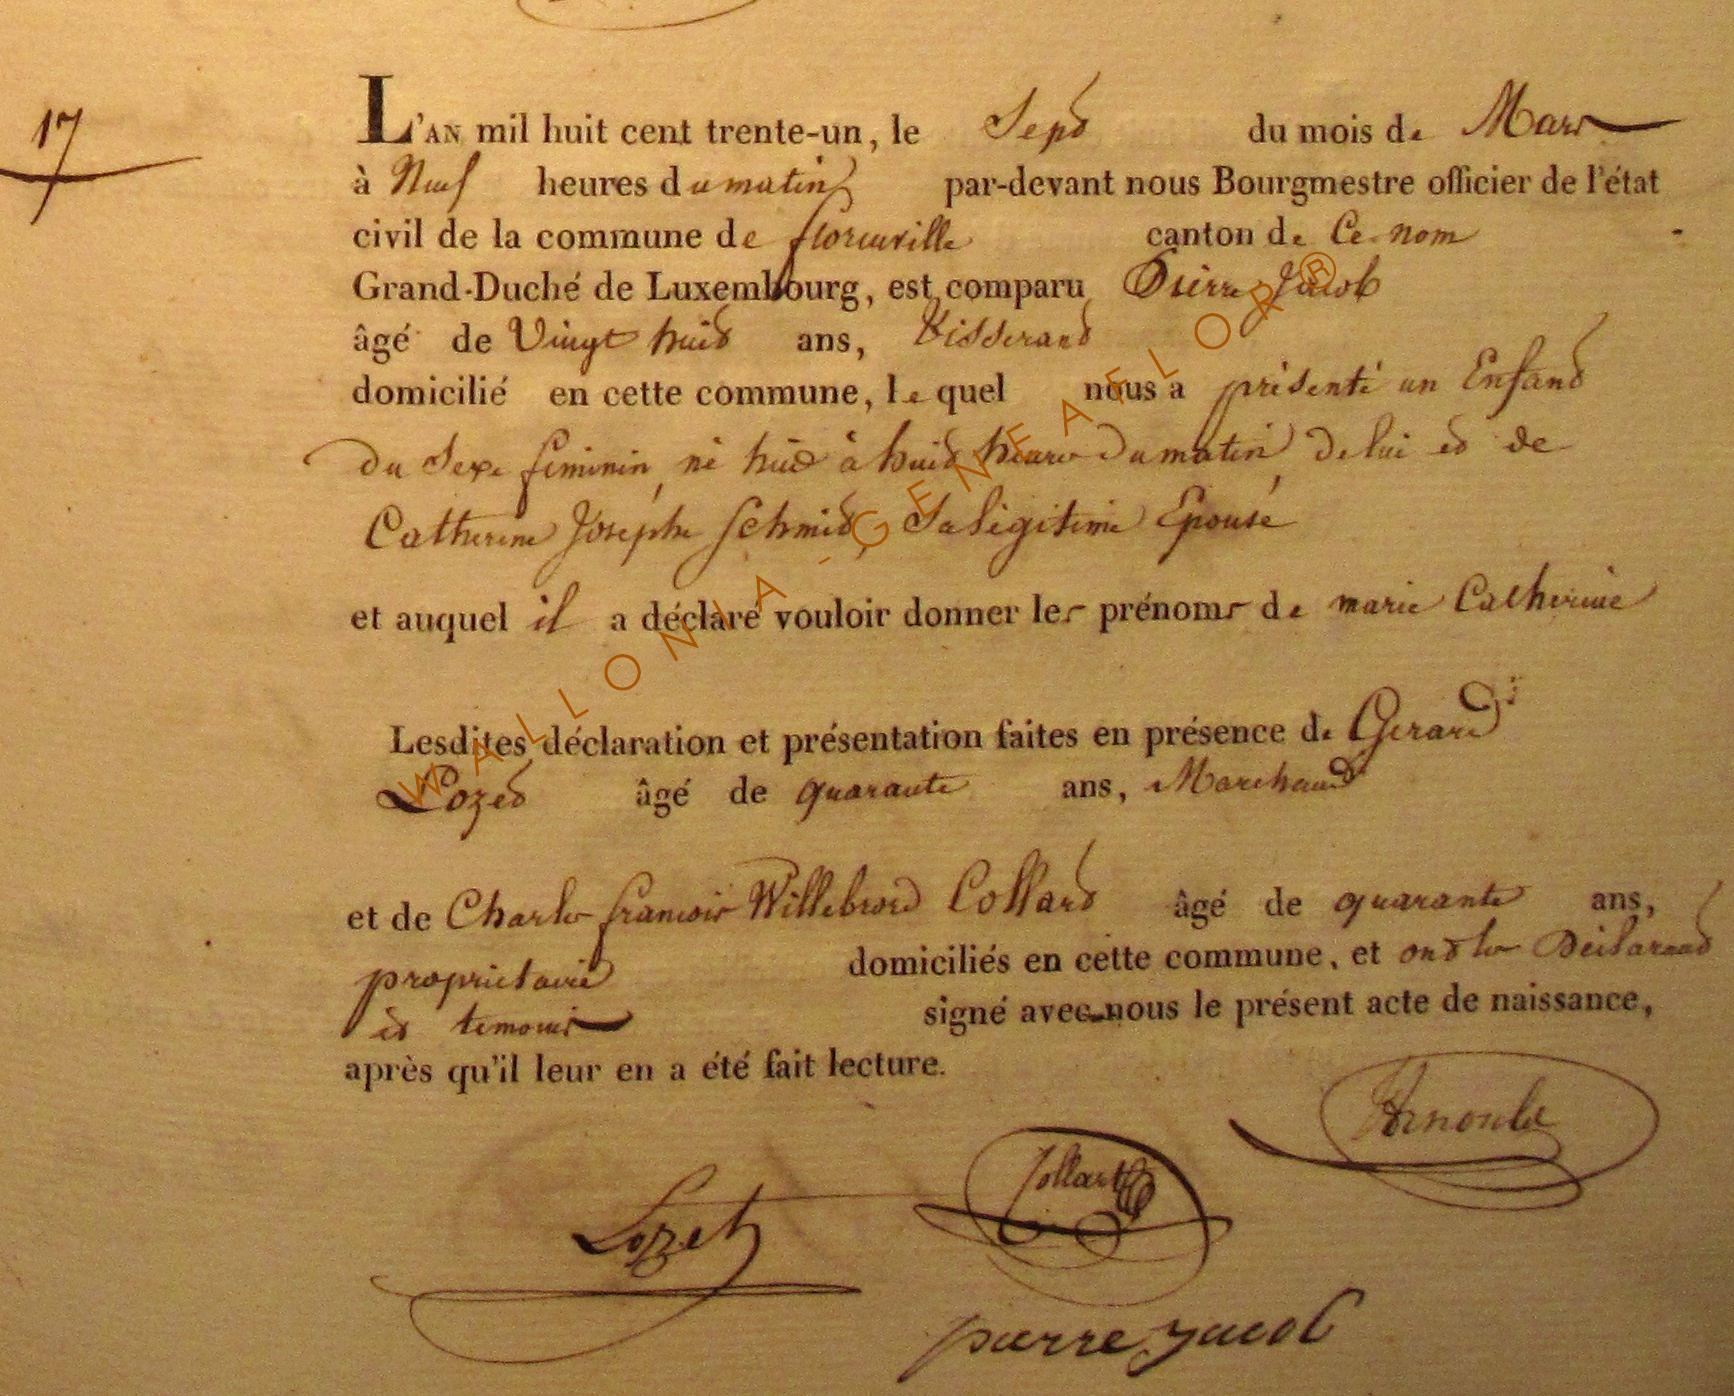 17
L'AN mil huit cent trente-un, le Sept du mois de Mars
à Neuf heures du matin par-devant nous Bourgmestre officier de l'état
civil de la commune de florenville canton de Ce nom
Grand-Duché de Luxembourg, est comparu Pierre Jacob
âgé de Vingt huit ans, Tisserand
domicilié en cette commune, le quel nous a présenté un Enfant
du Sexe feminin, né à huit heures du matin De lui et de
Catherine Joséphe Schmit, Sa légitime Epouse
et auquel il a déclaré vouloir donner les prénoms de marie Catherine
Lesdites déclaration et présentation faites en présence de Gerard
Lozet âgé de quarante ans, Marchand
et de Charles francois Willebrord Collard âgé de quarante ans,
proprietaire domiciliés en cette commune, et ont les Déclarant
et temoins signé avec nous le présent acte de naissance,
après qu'il leur en a été fait lecture.
Arnould
Collart
Lozet
pierre jacob
WALLONIA-GENEAFLOR®